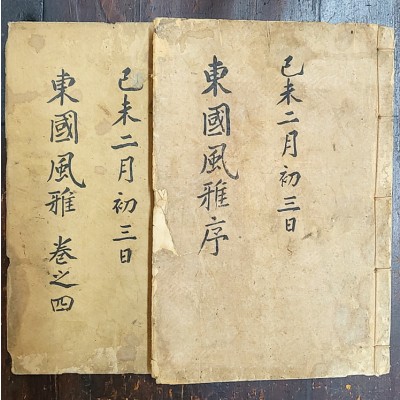 己未二月初三日
東國風雅序
己未二月初三日
東國風雅 卷之四